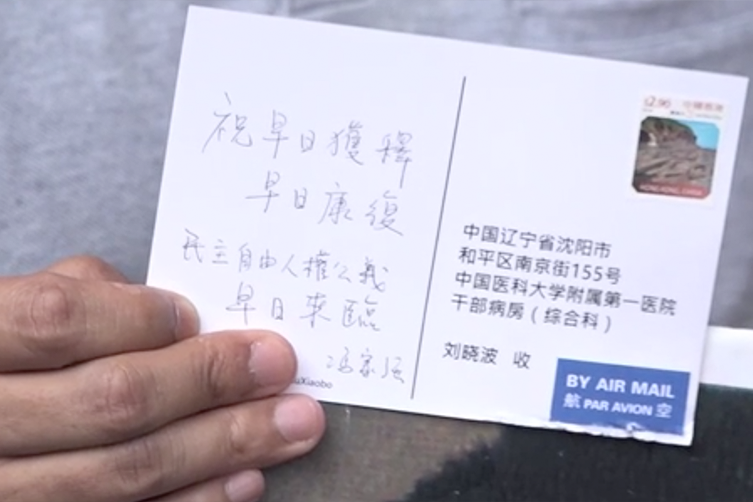 祝早日獲釋
早日康復
民主自由人權公義
早日來臨
馮家強
uXiaobo
$2.90 中國香港
HONG KONG, CHINA
中国辽宁省沈阳市
和平区南京街155号
中国医科大学附属第一医院
干部病房（综合科）
刘晓波 收
BY AIR MAIL
航 PAR AVION 空